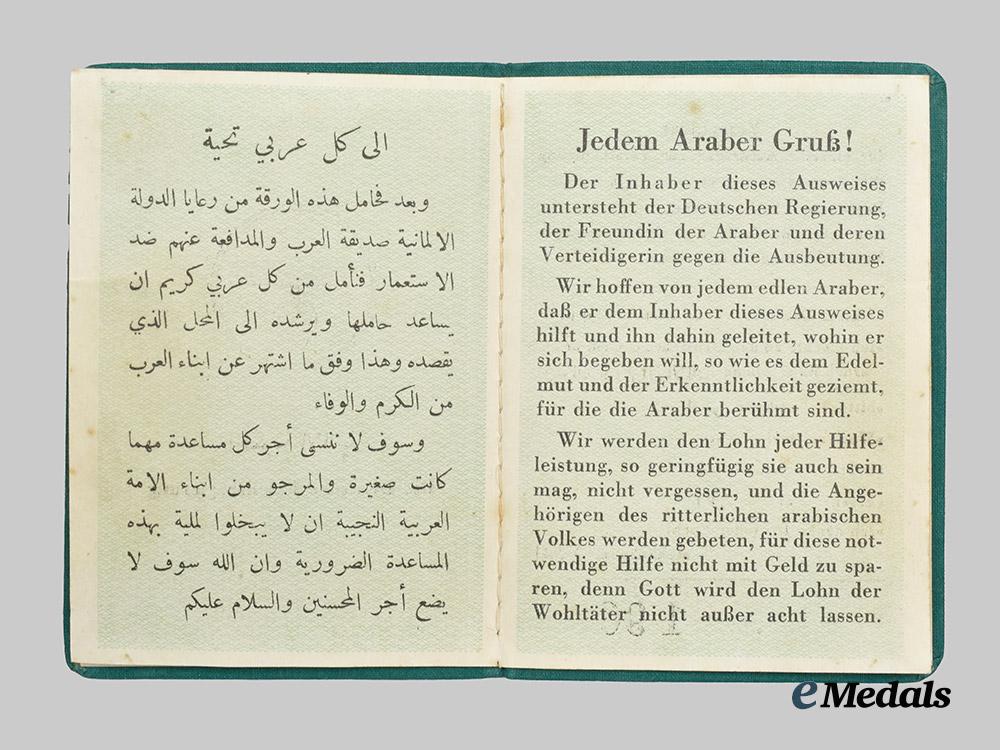 الى كل عربي تحية
وبعد فحامل هذه الورقة من رعايا الدولة
الالمانية صديقة العرب والمدافعة عنهم ضد
الاستعمار فنأمل من كل عربي كريم ان
يساعد حاملها ويرشده الى المحل الذي
يقصده وهذا وفق ما اشتهر عن ابناء العرب
من الكرم والوفاء
وسوف لا ننسى أجر كل مساعدة مهما
كانت صغيرة والمرجو من ابناء الامة
العربية النجيبة ان لا يبخلوا لملية بهذه
المساعدة الضرورية وان الله سوف لا
يضع أجر المحسنين والسلام عليكم
Jedem Araber Gruß!
Der Inhaber dieses Ausweises
untersteht der Deutschen Regierung,
der Freundin der Araber und deren
Verteidigerin gegen die Ausbeutung.
Wir hoffen von jedem edlen Araber,
daß er dem Inhaber dieses Ausweises
hilft und ihn dahin geleitet, wohin er
sich begeben will, so wie es dem Edel-
mut und der Erkenntlichkeit geziemt,
für die die Araber berühmt sind.
Wir werden den Lohn jeder Hilfe-
leistung, so geringfügig sie auch sein
mag, nicht vergessen, und die Ange-
hörigen des ritterlichen arabischen
Volkes werden gebeten, für diese not-
wendige Hilfe nicht mit Geld zu spa-
ren, denn Gott wird den Lohn der
Wohltäter nicht außer acht lassen.
eMedals